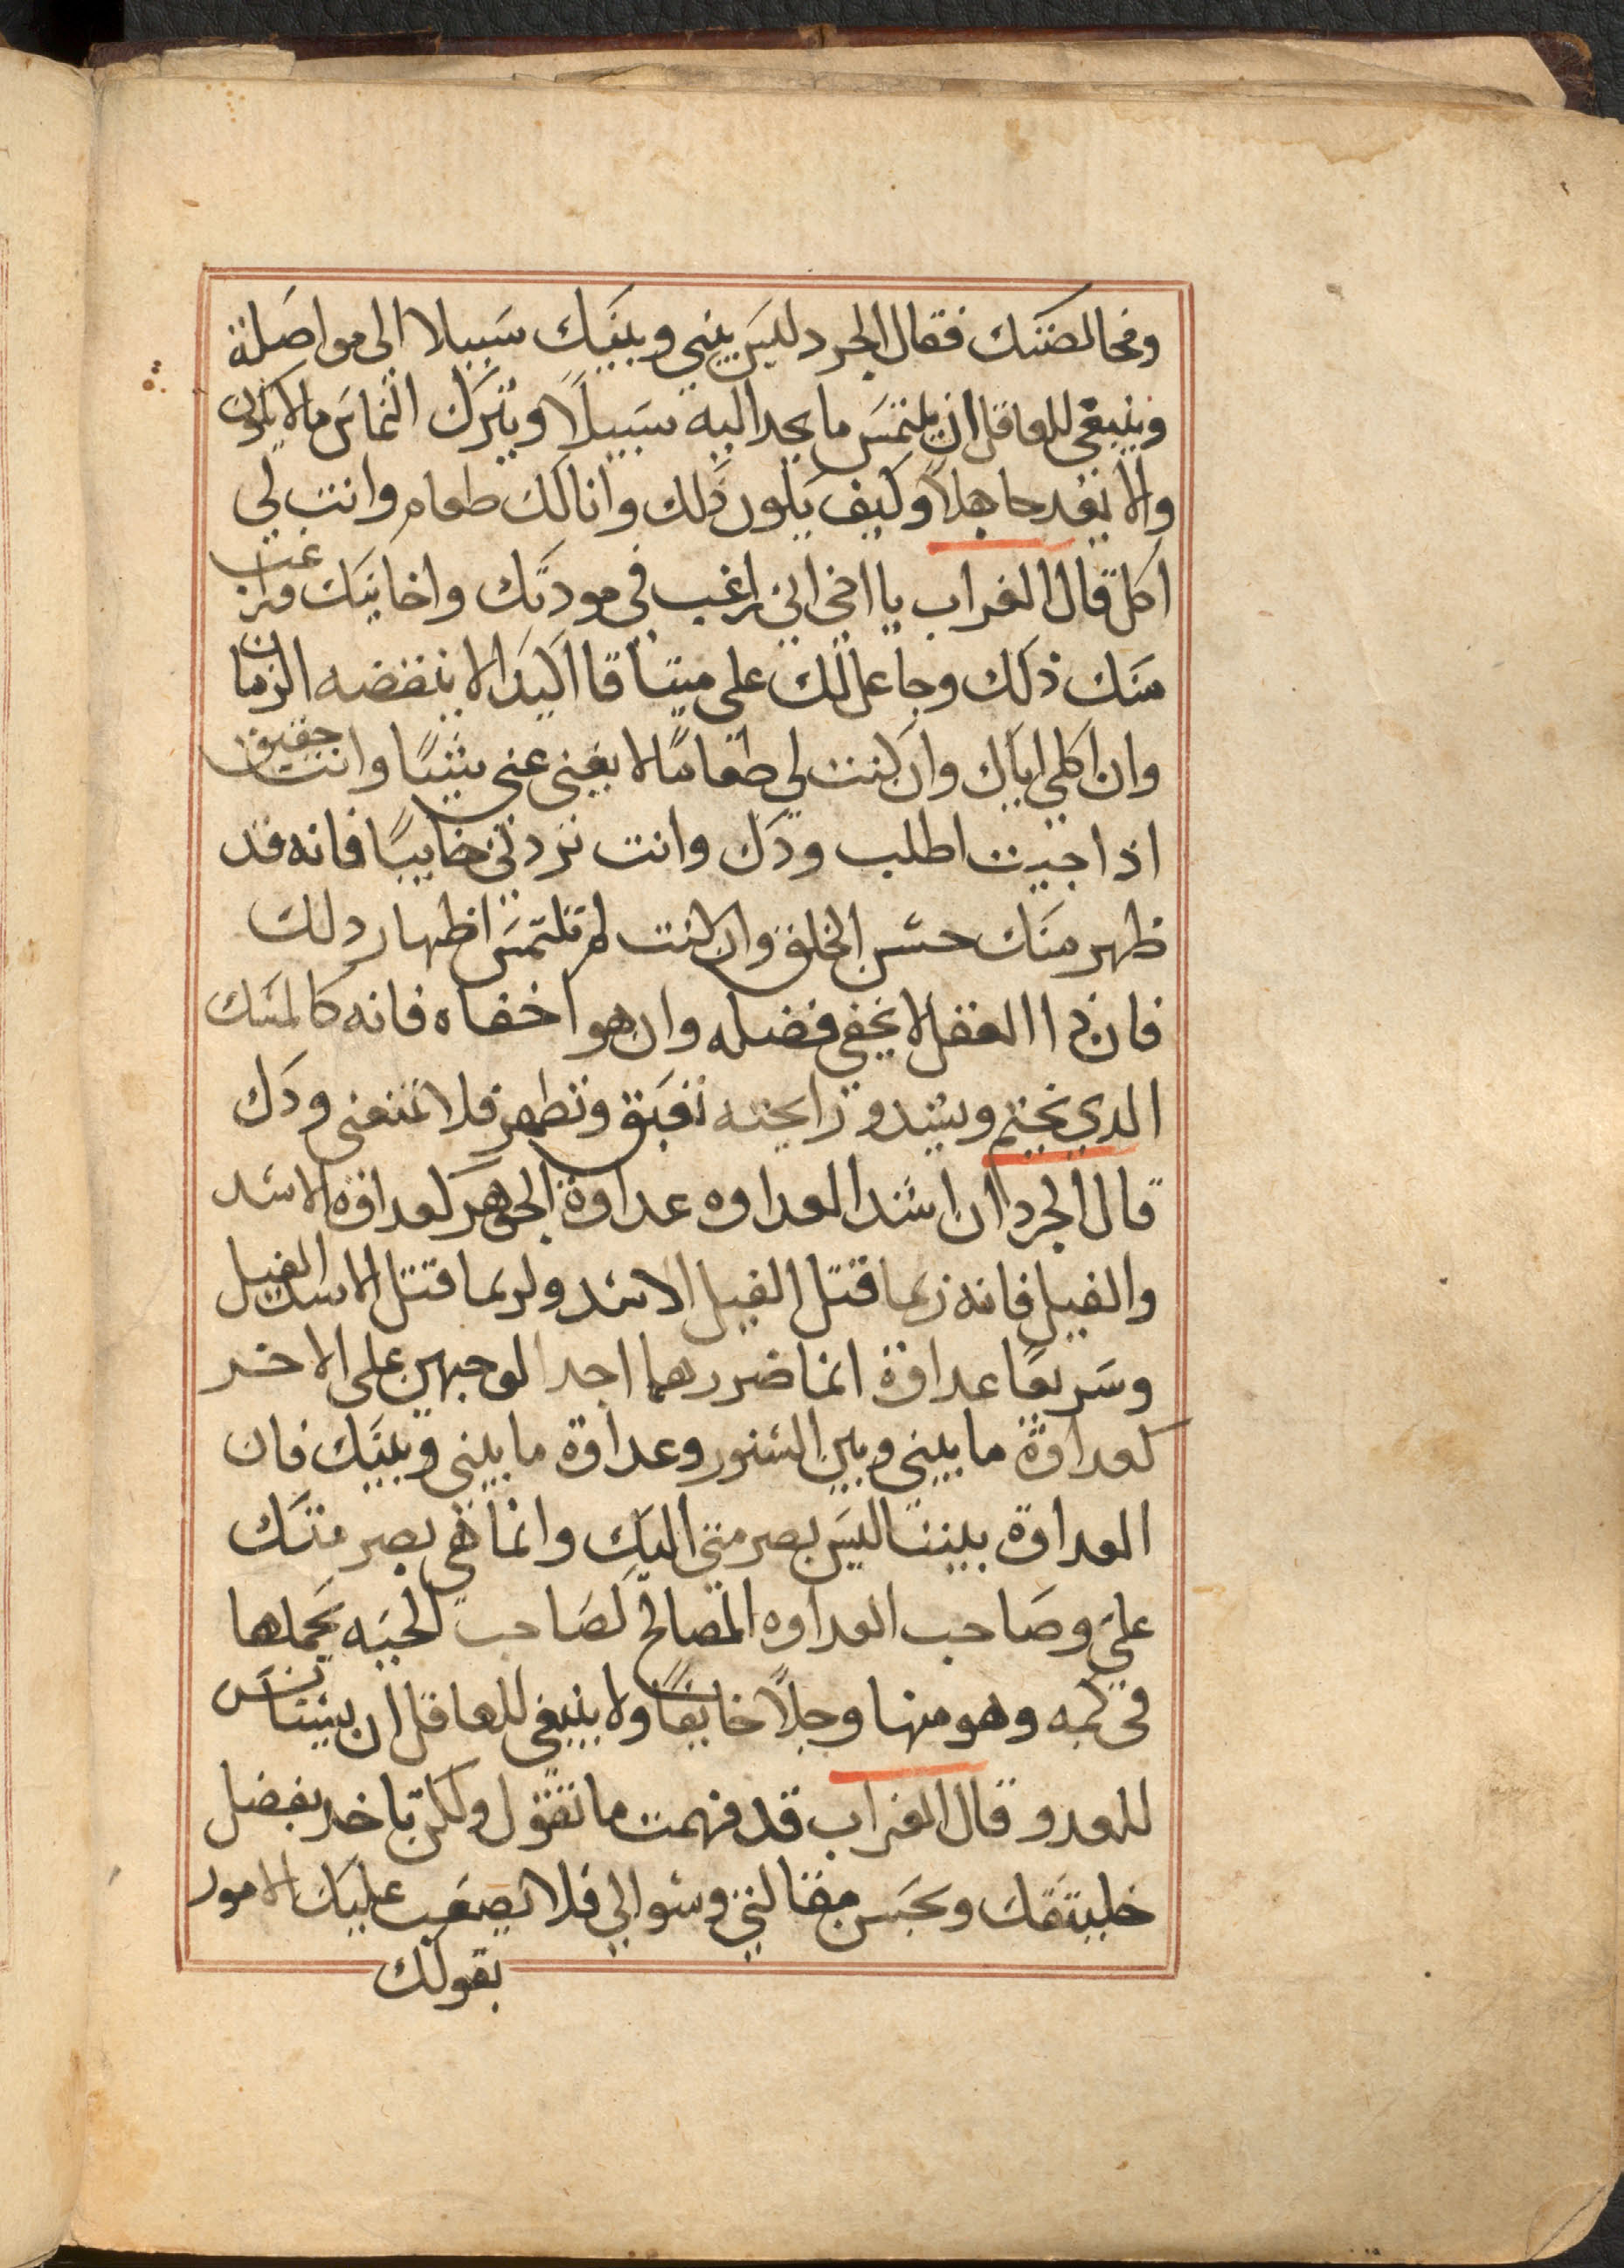 ومخالصتك فقال الجرد ليس بيني وبينك سبيلا الى مواصلة
وينبغي للعاقل ان يلتمس ما يجد اليه سبيلاً ويترك التماس ما لا يكون
والا يعد جاهلاً وكيف يكون ذلك وانا لك طعام وانت لي
اكل قال الغراب يا اخي اني راغب في مودتك واخايتك وراغب
منك ذلك وجاعل لك علي ميثاقا اكيدا لا ينقضه الزمان
وان اكلي اياك وان كنت لي طعامًا لا يغني عني شيًا وانت حقيق
اذا جيت اطلب ودك وانت تردني خايبًا فانه قد
ظهر منك حسن الخلق وان كنت لم تلتمس اظهار دلك
فان ذا العقل لا يخفى فضله وان هو اخفاه فانه كالمسك
الدي يختم ويشد ورايحته تعبق وتظهر فلا تمنعني ودك
قال الجرد ان اشد العداوه عداوة الجوهر كعداوة الاسد
والفيل فانه ربما قتل الفيل الاسد ولربما قتل الاسد الفيل
وسريعًا عداوة انما ضررهما احد الوجهين على الاخر
كعداوة ما بيني وبين السنور وعداوة ما بيني وبينك فان
العداوة بيننا ليس بضر مني اليك وانما هي بضر منك
علي وصاحب العداوه المصالح كصاحب الحيه يحملها
في كمه وهو منها وجلاً خايفًا ولا ينبغي للعاقل ان يستانس
للعدو قال الغراب قد فهمت ما تقول ولكن تاخد بفضل
خليقتك وبحسن مقالتي وسوالي فلا تصعب عليك الامور
بقولك